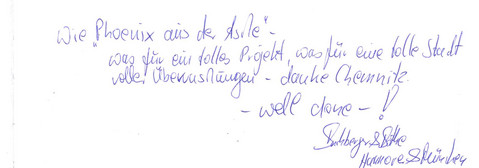 Wie "Phoenix aus der Asche" -
was für ein tolles Projekt, was für eine tolle Stadt
voller Überraschungen - danke Chemnitz.
- well done - !
Hannover & München